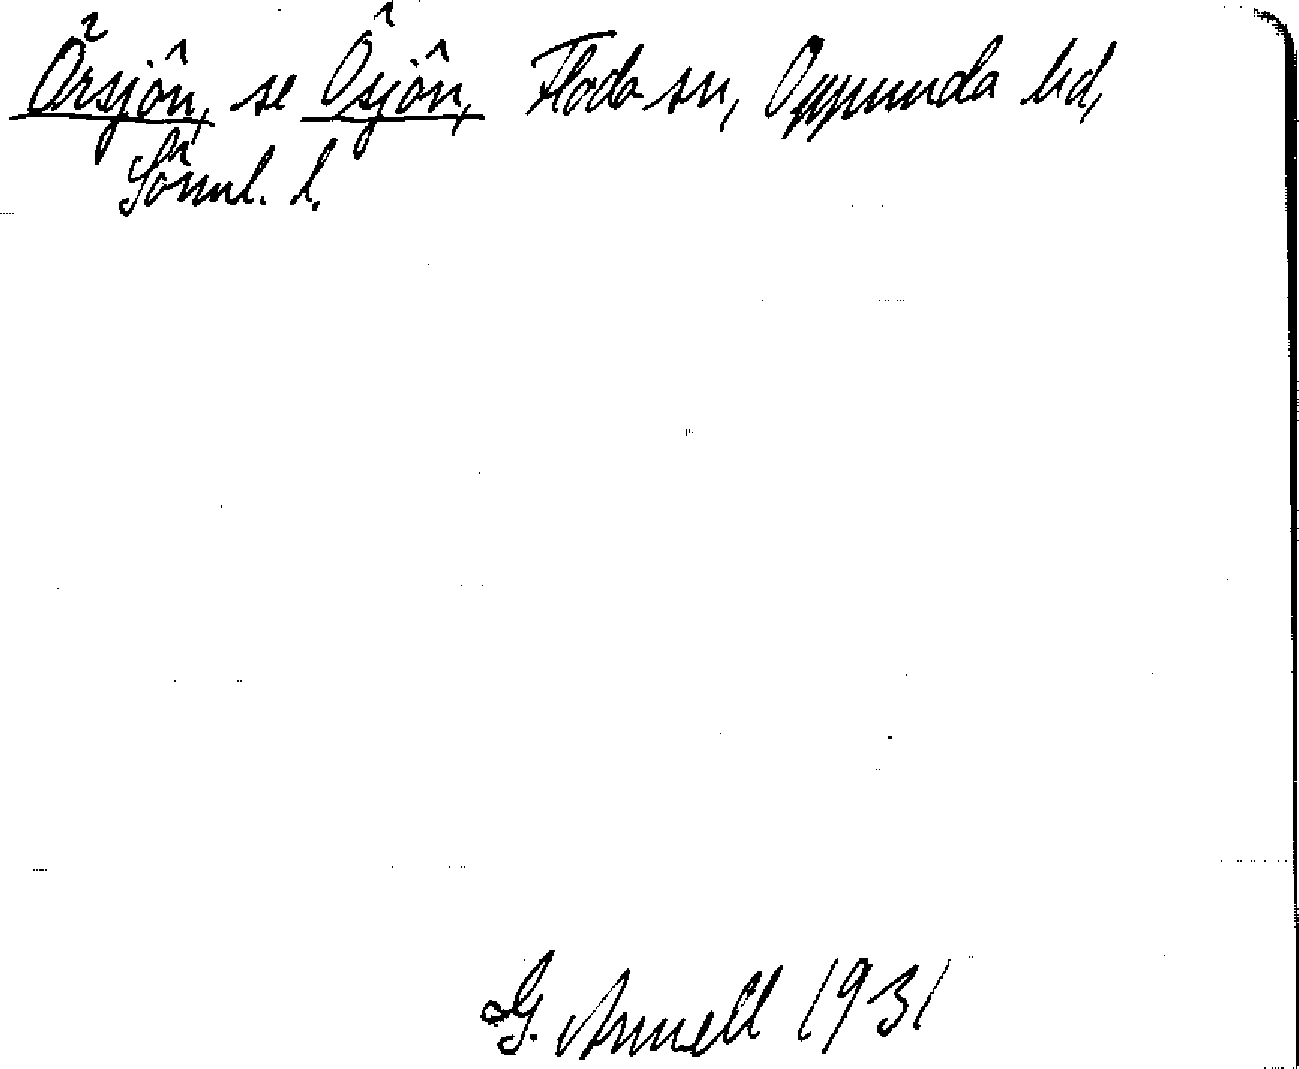 Örsjön, se Ösjön, Floda sn, Oppunda hd,
Sörml. l.
G. Annell 1931